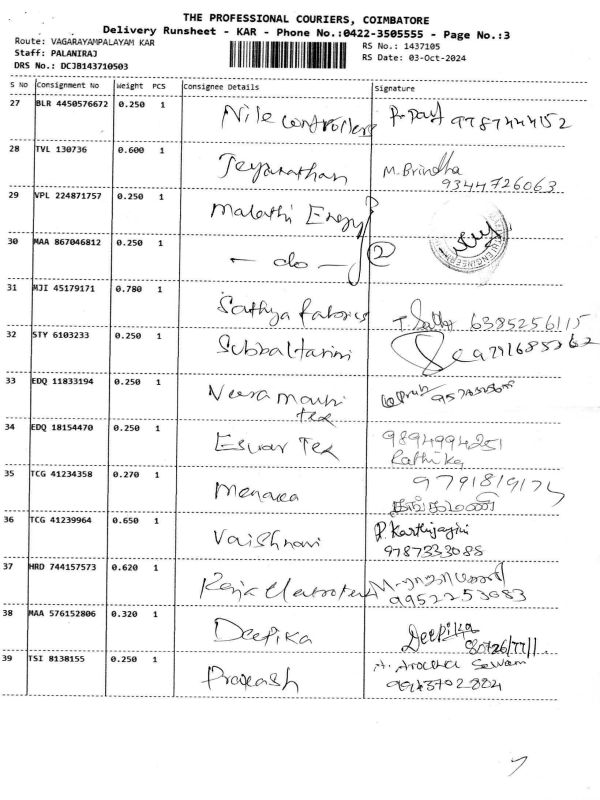 THE PROFESSIONAL COURIERS, COIMBATORE
Delivery Runsheet - KAR - Phone No.:0422-3505555 - Page No.:3
Route: VAGARAYAMPALAYAM KAR
RS No.: 1437105
Staff: PALANIRAJ
RS Date: 03-Oct-2024
DRS No.: DCJB143710503
S No Consignment No Weight PCS Consignee Details Signature
27 BLR 4450576672 0.250 1 Nile Controllers 9787444152
28 TVL 130736 0.600 1 Jeyanathan M. Brindha
9344726063
29 VPL 224871757 0.250 1 Malathi Energy
30 MAA 867046812 0.250 1 - do - 2
31 MJI 45179171 0.780 1 Sathya Fabrics 6385256115
32 STY 6103233 0.250 1
33 EDQ 11833194 0.250 1 Tex
34 EDQ 18154470 0.250 1 Eswar Tex 9894994251
Rathika
35 TCG 41234358 0.270 1 Menaka
தங்கமணி
36 TCG 41239964 0.650 1 Vaishnavi P. Karthijayini
9787333088
37 HRD 744157573 0.620 1
9952253083
38 MAA 576152806 0.320 1 Deepika Deepika
39 TSI 8138155 0.250 1 Prakash